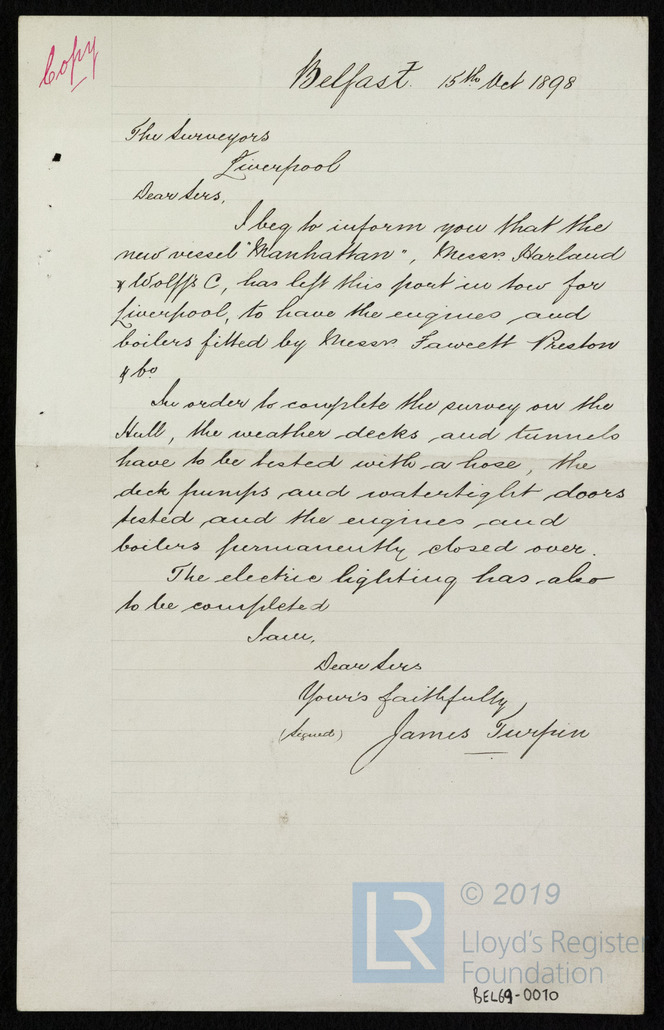 Copy
Belfast. 15th Oct 1898
The Surveyors
Liverpool
Dear Sirs,
I beg to inform you that the
new vessel "Manhattan", Messrs Harland
& Wolff's C, has left this port in tow for
Liverpool, to have the engines and
boilers fitted by Messrs Fawcett Preston
& Co
In order to complete the survey on the
Hull, the weather decks and tunnels
have to be tested with a hose, the
deck pumps and watertight doors
tested and the engines and
boilers permanently closed over.
The electric lighting has also
to be completed
I am,
Dear Sirs
Your's faithfully,
(Signed) James Turpin
LR
© 2019
Lloyd's Register
Foundation
BEL69-0010